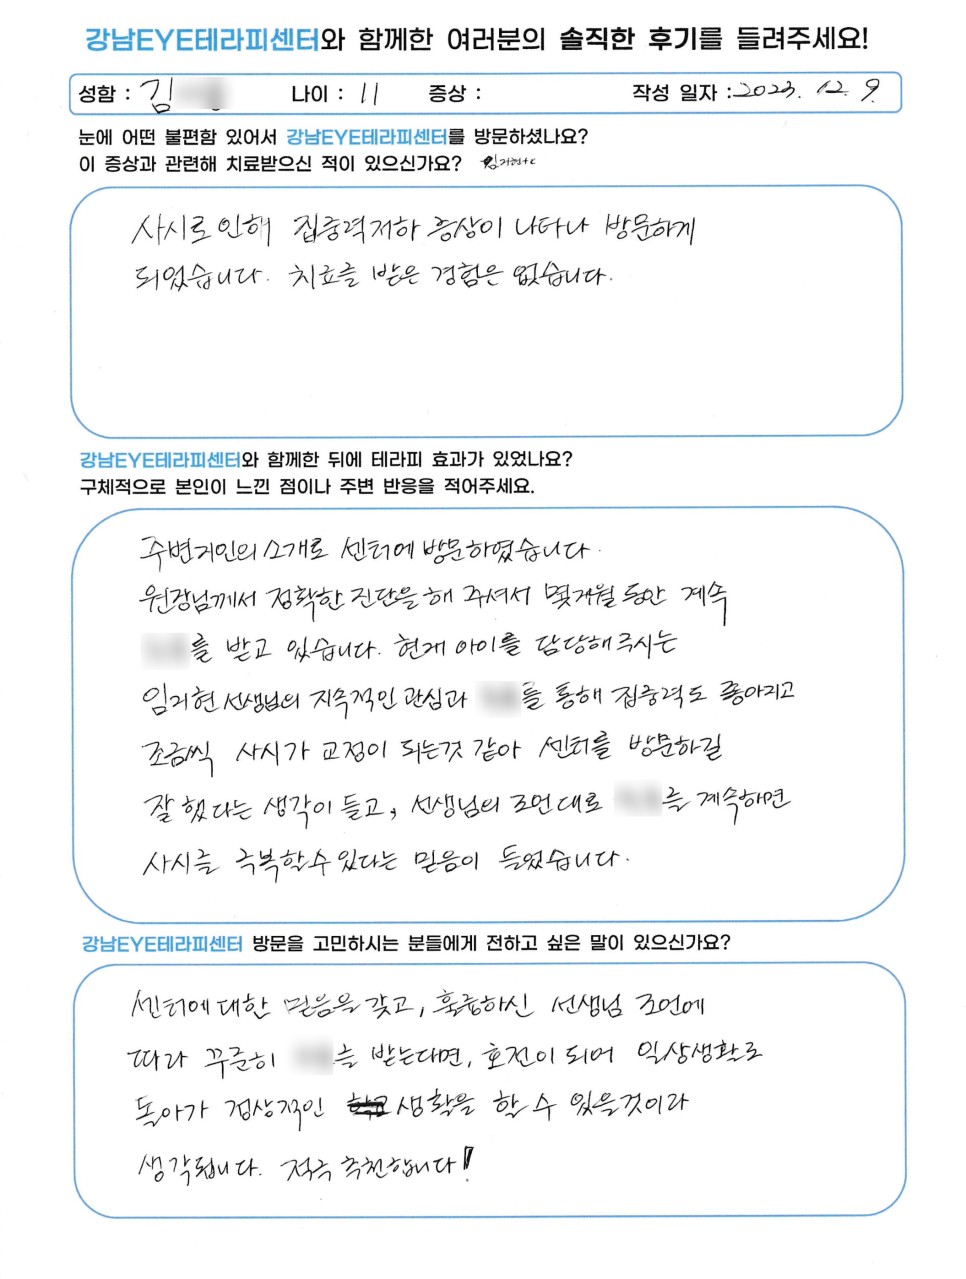 강남EYE테라피센터와 함께한 여러분의 솔직한 후기를 들려주세요!
성함 : 김 나이 : 11 증상 : 작성 일자 : 2023. 12. 9.
눈에 어떤 불편함 있어서 강남EYE테라피센터를 방문하셨나요?
이 증상과 관련해 치료받으신 적이 있으신가요?
사시로 인해 집중력저하 증상이 나타나 방문하게
되었습니다. 치료를 받은 경험은 없습니다.
강남EYE테라피센터와 함께한 뒤에 테라피 효과가 있었나요?
구체적으로 본인이 느낀 점이나 주변 반응을 적어주세요.
주변지인의 소개로 센터에 방문하였습니다.
원장님께서 정확한 진단을 해 주셔서 몇개월 동안 계속
를 받고 있습니다. 현재 아이를 담당해주시는
임지현 선생님의 지속적인 관심과 를 통해 집중력도 좋아지고
조금씩 사시가 교정이 되는것 같아 센터를 방문하길
잘 했다는 생각이 들고, 선생님의 조언대로 를 계속하면
사시를 극복할수 있다는 믿음이 들었습니다.
강남EYE테라피센터 방문을 고민하시는 분들에게 전하고 싶은 말이 있으신가요?
센터에 대한 믿음을 갖고, 훌륭하신 선생님 조언에
따라 꾸준히 를 받는다면, 호전이 되어 일상생활로
돌아가 정상적인 생활을 할 수 있을것이라
생각됩니다. 적극 추천합니다!